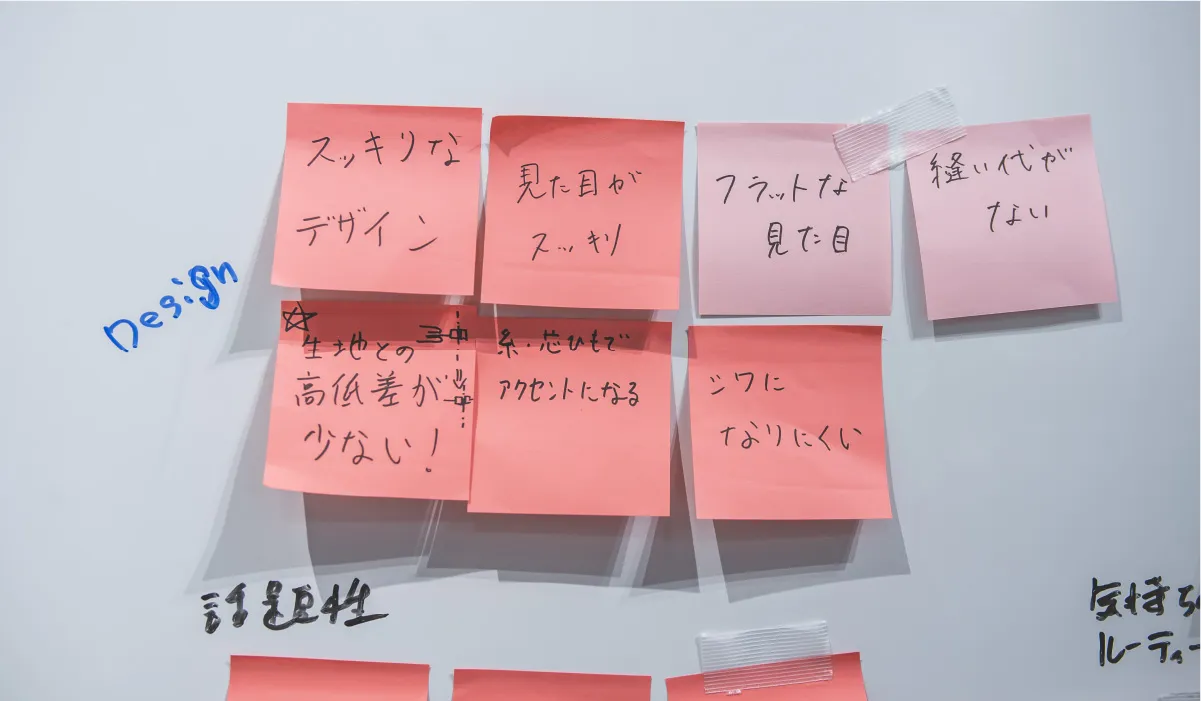 スッキリな
デザイン
見た目が
スッキリ
フラットな
見た目
縫い代が
ない
Design
☆
生地との
高低差が
少ない!
糸・芯ひもで
アクセントになる
シワに
なりにくい
話題性
気持ち
ルーティー